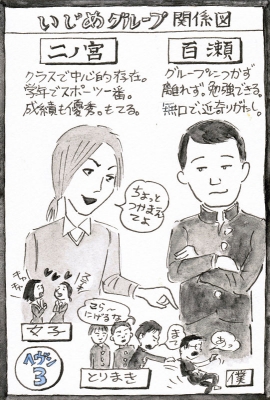 いじめグループ関係図
二ノ宮
クラスで中心的存在。
学年でスポーツ一番。
成績も優秀。もてる。
百瀬
グループにつかず
離れず。勉強できる。
無口で近寄りがたし。
ちょっと
つかまえ
てよ
キャ
キャ
女子
こらー
にげるな
とりまき
まて
あっ
僕
ヘヴン
3